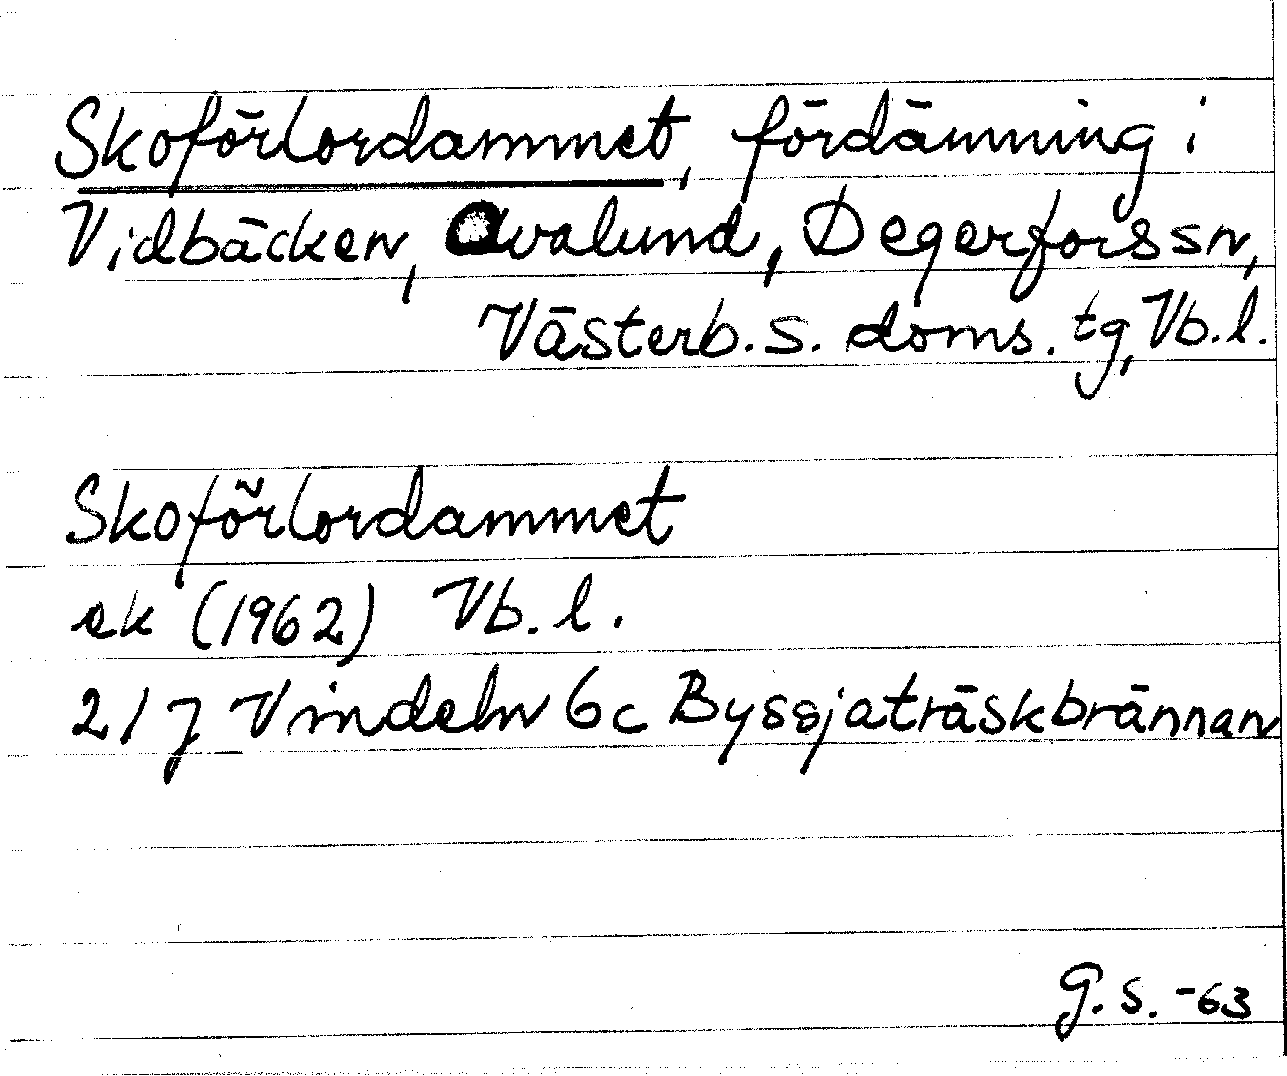 Skoförlordammet, fördämning i
Vidbäcken, Avalund, Degerforssn,
Västerb.s. doms. tg, Vb.l.
Skoförlordammet
ek (1962) Vb.l.
21 J Vindeln 6c Byssjaträskbrännan
G.S.-63